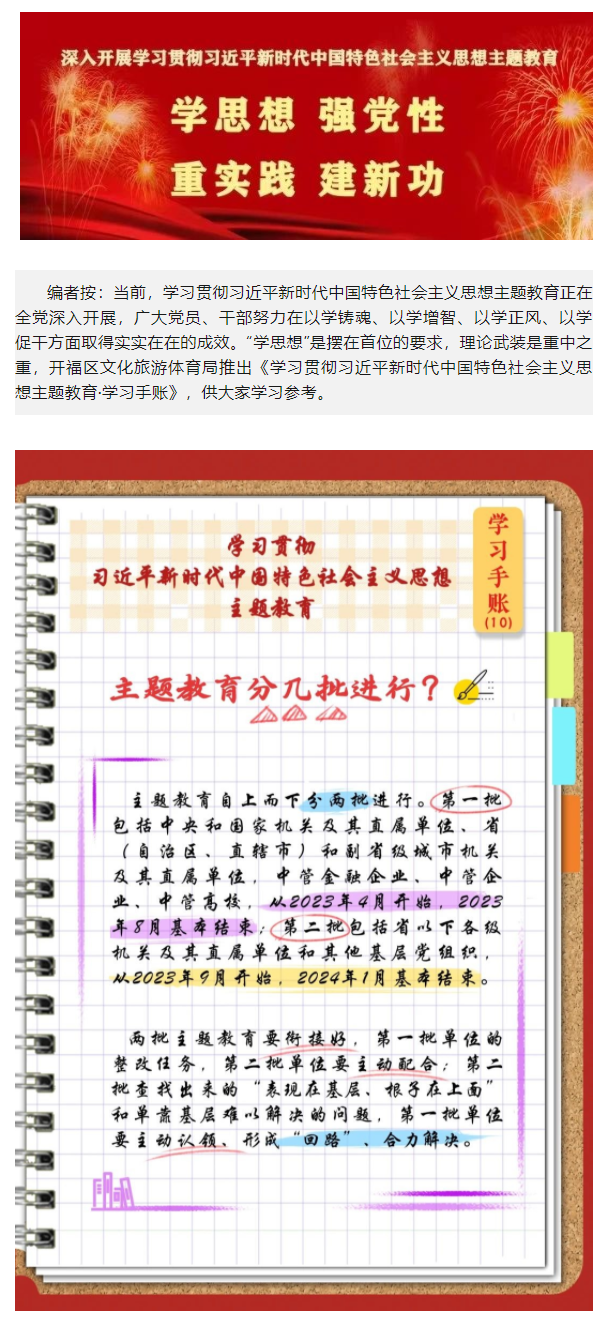 深入开展学习贯彻习近平新时代中国特色社会主义思想主题教育
学思想 强党性
重实践 建新功
编者按：当前，学习贯彻习近平新时代中国特色社会主义思想主题教育正在
全党深入开展，广大党员、干部努力在以学铸魂、以学增智、以学正风、以学
促干方面取得实实在在的成效。“学思想”是摆在首位的要求，理论武装是重中之
重，开福区文化旅游体育局推出《学习贯彻习近平新时代中国特色社会主义思
想主题教育·学习手账》，供大家学习参考。
学习手账
(10)
学习贯彻
习近平新时代中国特色社会主义思想
主题教育
主题教育分几批进行？
主题教育自上而下分两批进行。第一批
包括中央和国家机关及其直属单位、省
（自治区、直辖市）和副省级城市机关
及其直属单位，中管金融企业、中管企
业、中管高校，从2023年4月开始，2023
年8月基本结束；第二批包括省以下各级
机关及其直属单位和其他基层党组织，
从2023年9月开始，2024年1月基本结束。
两批主题教育要衔接好，第一批单位的
整改任务，第二批单位要主动配合；第二
批查找出来的“表现在基层、根子在上面”
和单靠基层难以解决的问题，第一批单位
要主动认领、形成“回路”、合力解决。